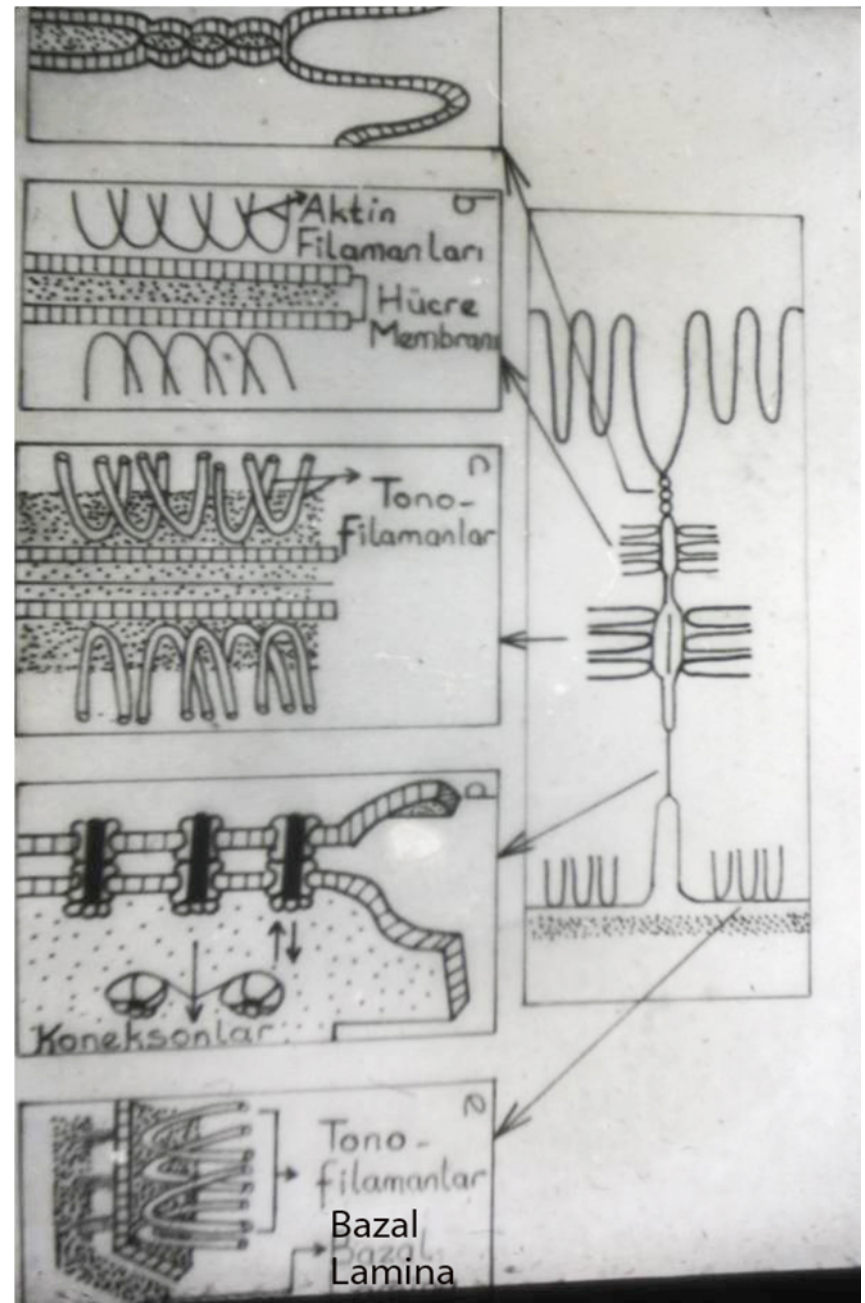 b
Aktin
Filamanları
Hücre
Membranı
c
Tono-
Filamanlar
d
Koneksonlar
e
Tono-
filamanlar
Bazal
Bazal
Lamina